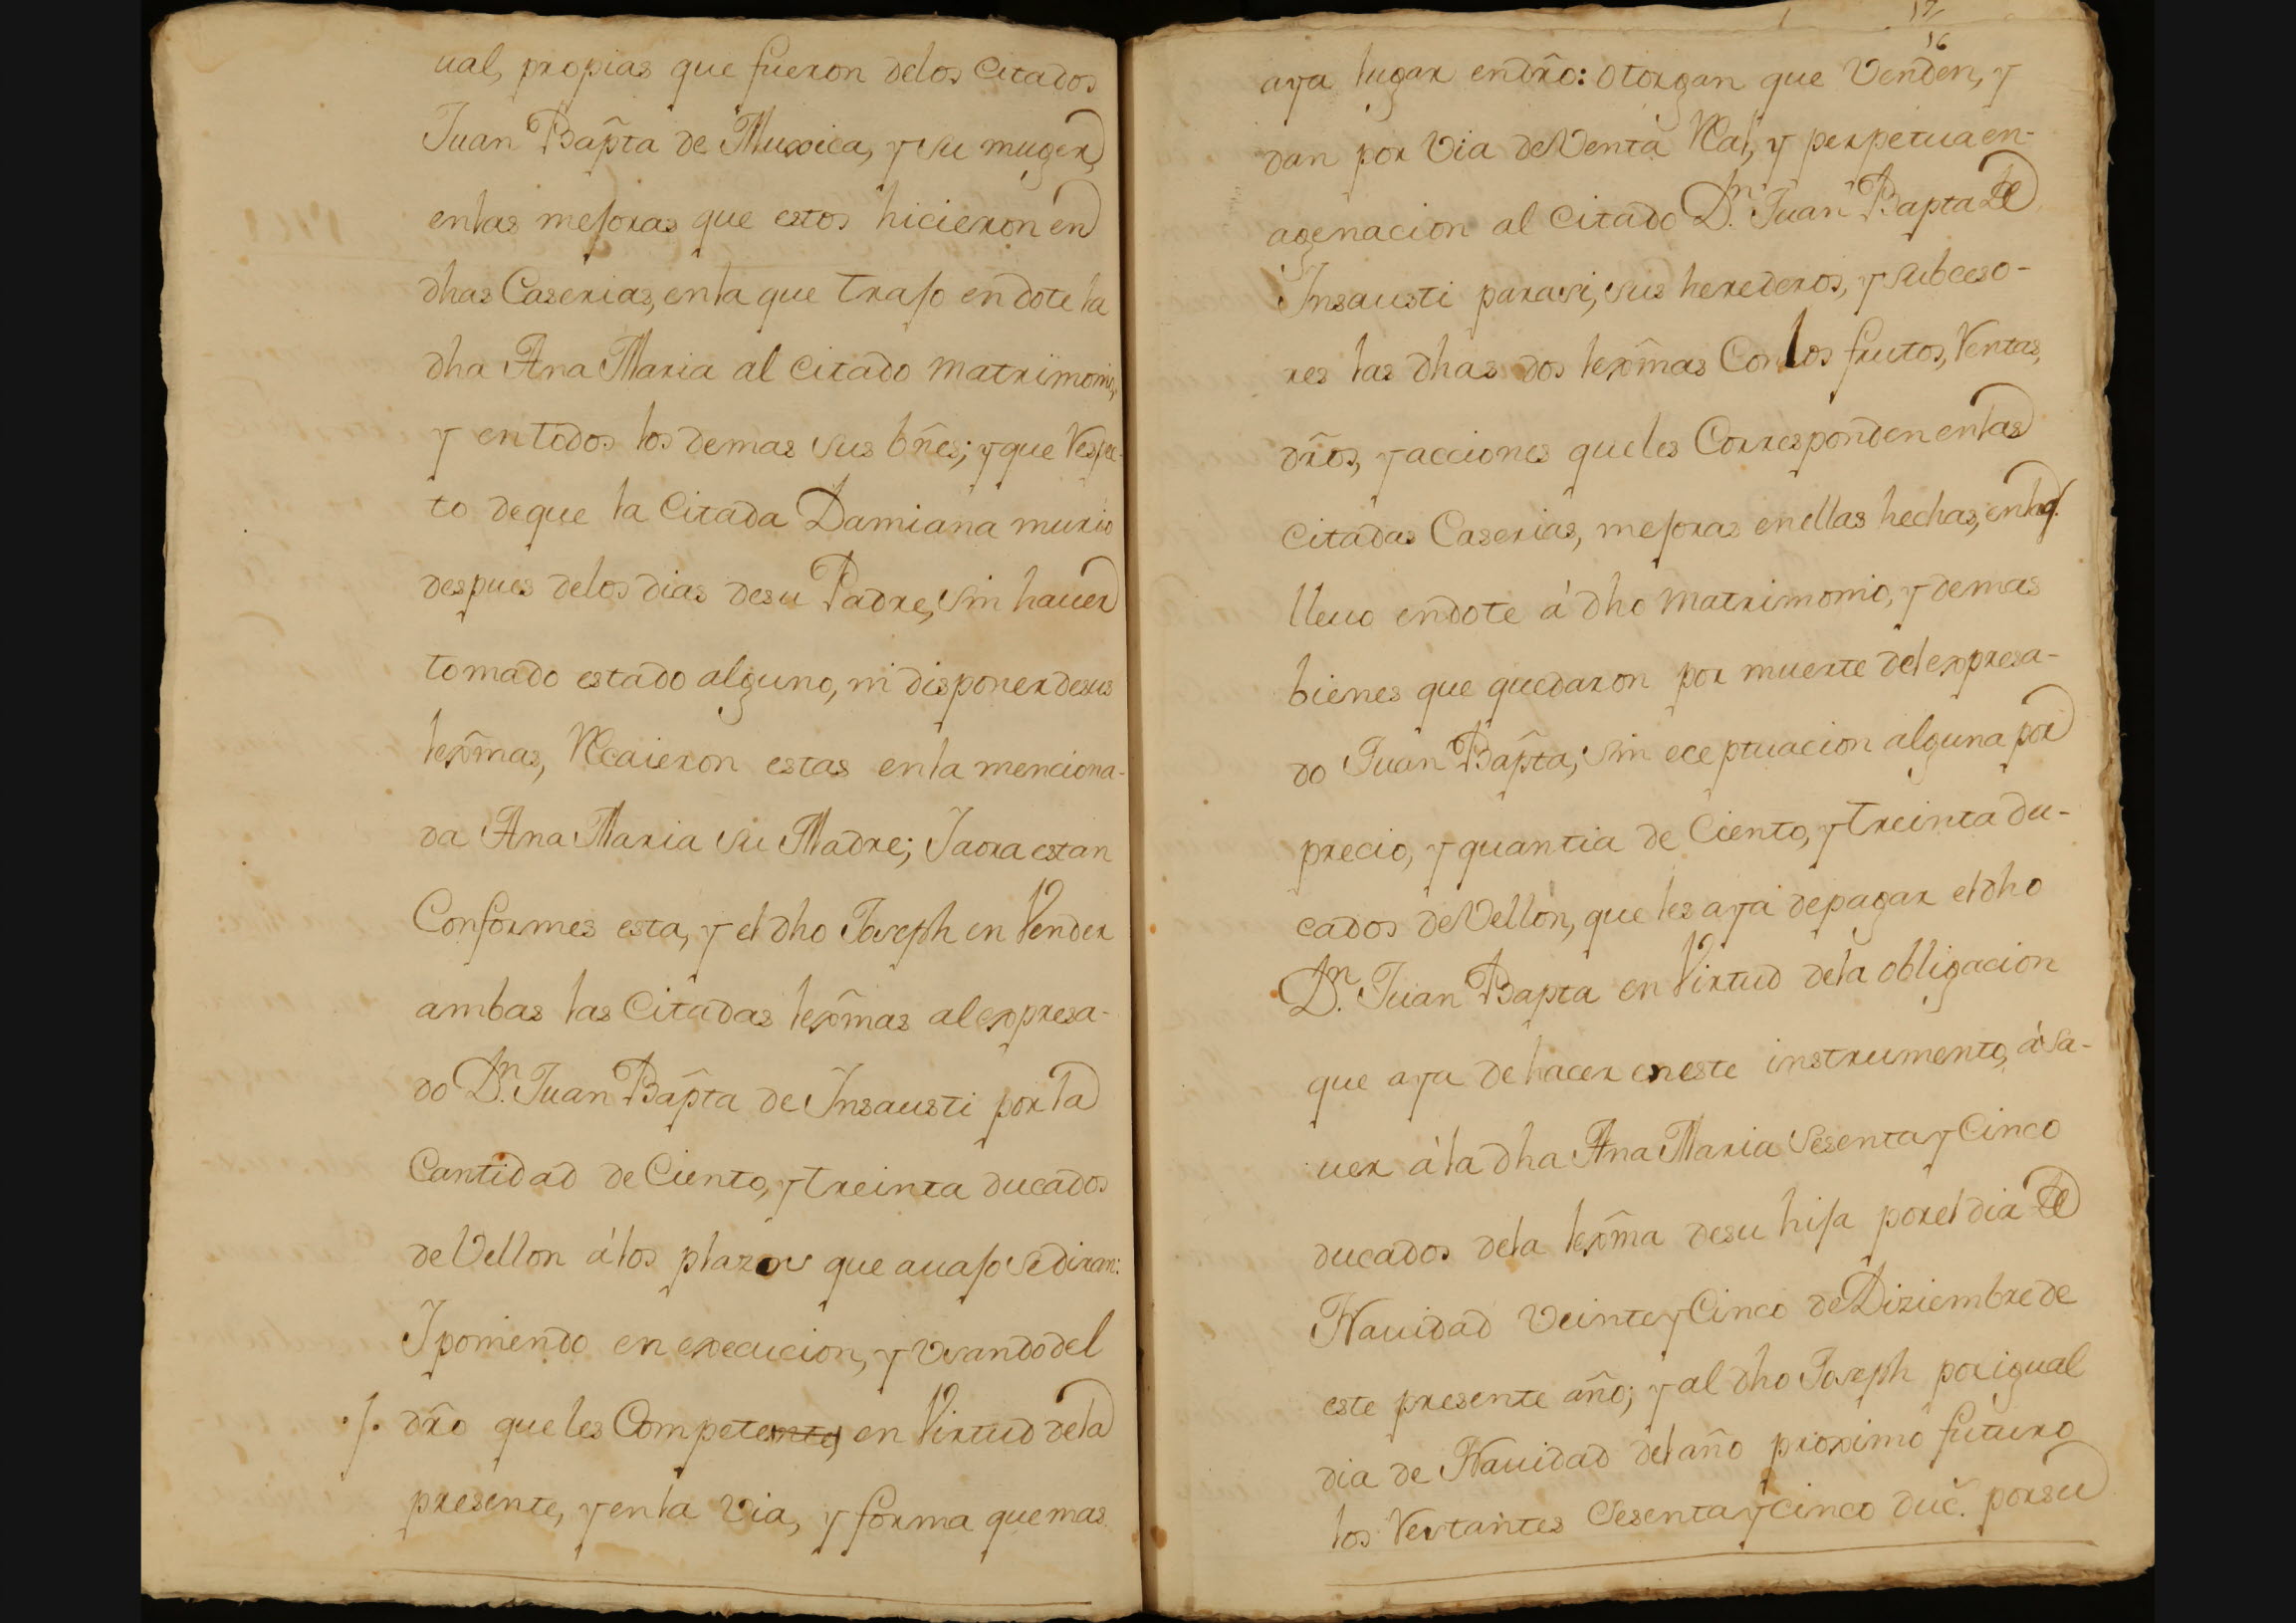 ual, propias que fueron delos Citados
Juan Bap̃ta de Muxica, y su muger,
enlas mejoras que estos hicieron en
dhas Caserias, enla que trajo en dote la
dha Ana Maria al Citado matrimonio,
y en todos los demas sus bñes; y que respec-
to deque la Citada Damiana murio
despues delos dias desu Padre, sin hauer
tomado estado alguno, ni disponer desus
lexm̃as, Recaieron estas enla menciona-
da Ana Maria su Madre; Jaora estan
Conformes esta, y el dho Joseph en Vender
ambas las Citadas lexm̃as al expresa-
do Dn. Juan Bap̃ta de Insausti por la
Cantidad de Ciento, y treinta ducados
de Vellon á los plazos que auajo se diran:
Iponiendo en execucion, y Vsando del
./. dr̃o que les Competente, en Virtud dela
presente, y enla Via, y forma que mas
17
16
aya lugar endr̃o: otorgan que Venden, y
dan por Via de Venta Real, y perpetua en-
agenacion al Citado Dn. Juan Bapta de
Insausti parasi, sus herederos, y subceso-
res las dhas dos lexm̃as Con los frutos, Rentas,
dr̃os, y acciones que les Corresponden enlas
Citadas Caserias, mejoras en ellas hechas, enlaq.
lleuo en dote á dho matrimonio, y demas
bienes que quedaron por muerte del expresa-
do Juan Bap̃ta, sin eceptuacion alguna por
precio, y quantia de Ciento, y treinta du-
cados de Vellon, que les aya depagar el dho
Dn. Juan Bapta en Virtud dela obligacion
que aya de hacer en este instrumento, á sa-
uer á la dha Ana Maria Sesenta y Cinco
ducados dela lexm̃a desu hija por el dia de
Nauidad Veinte y Cinco de Diziembre de
este presente año; y al dho Joseph por igual
dia de Nauidad del año proximo futuro
los Restantes Sesenta y cinco duc̃. por su